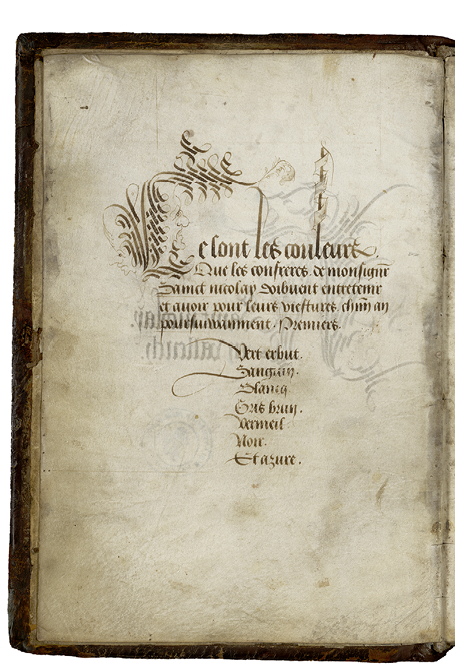 Ce sont les couleurs
Que les confreres de monsignr
Sainct nicolay doibuent entretenir
et auoir pour leurs viestures chun an
poursuiuamment. Premiers.
Vert erbut.
Sanguin.
Blancq
Gris brun.
Vermeil
Noir.
Et azure.